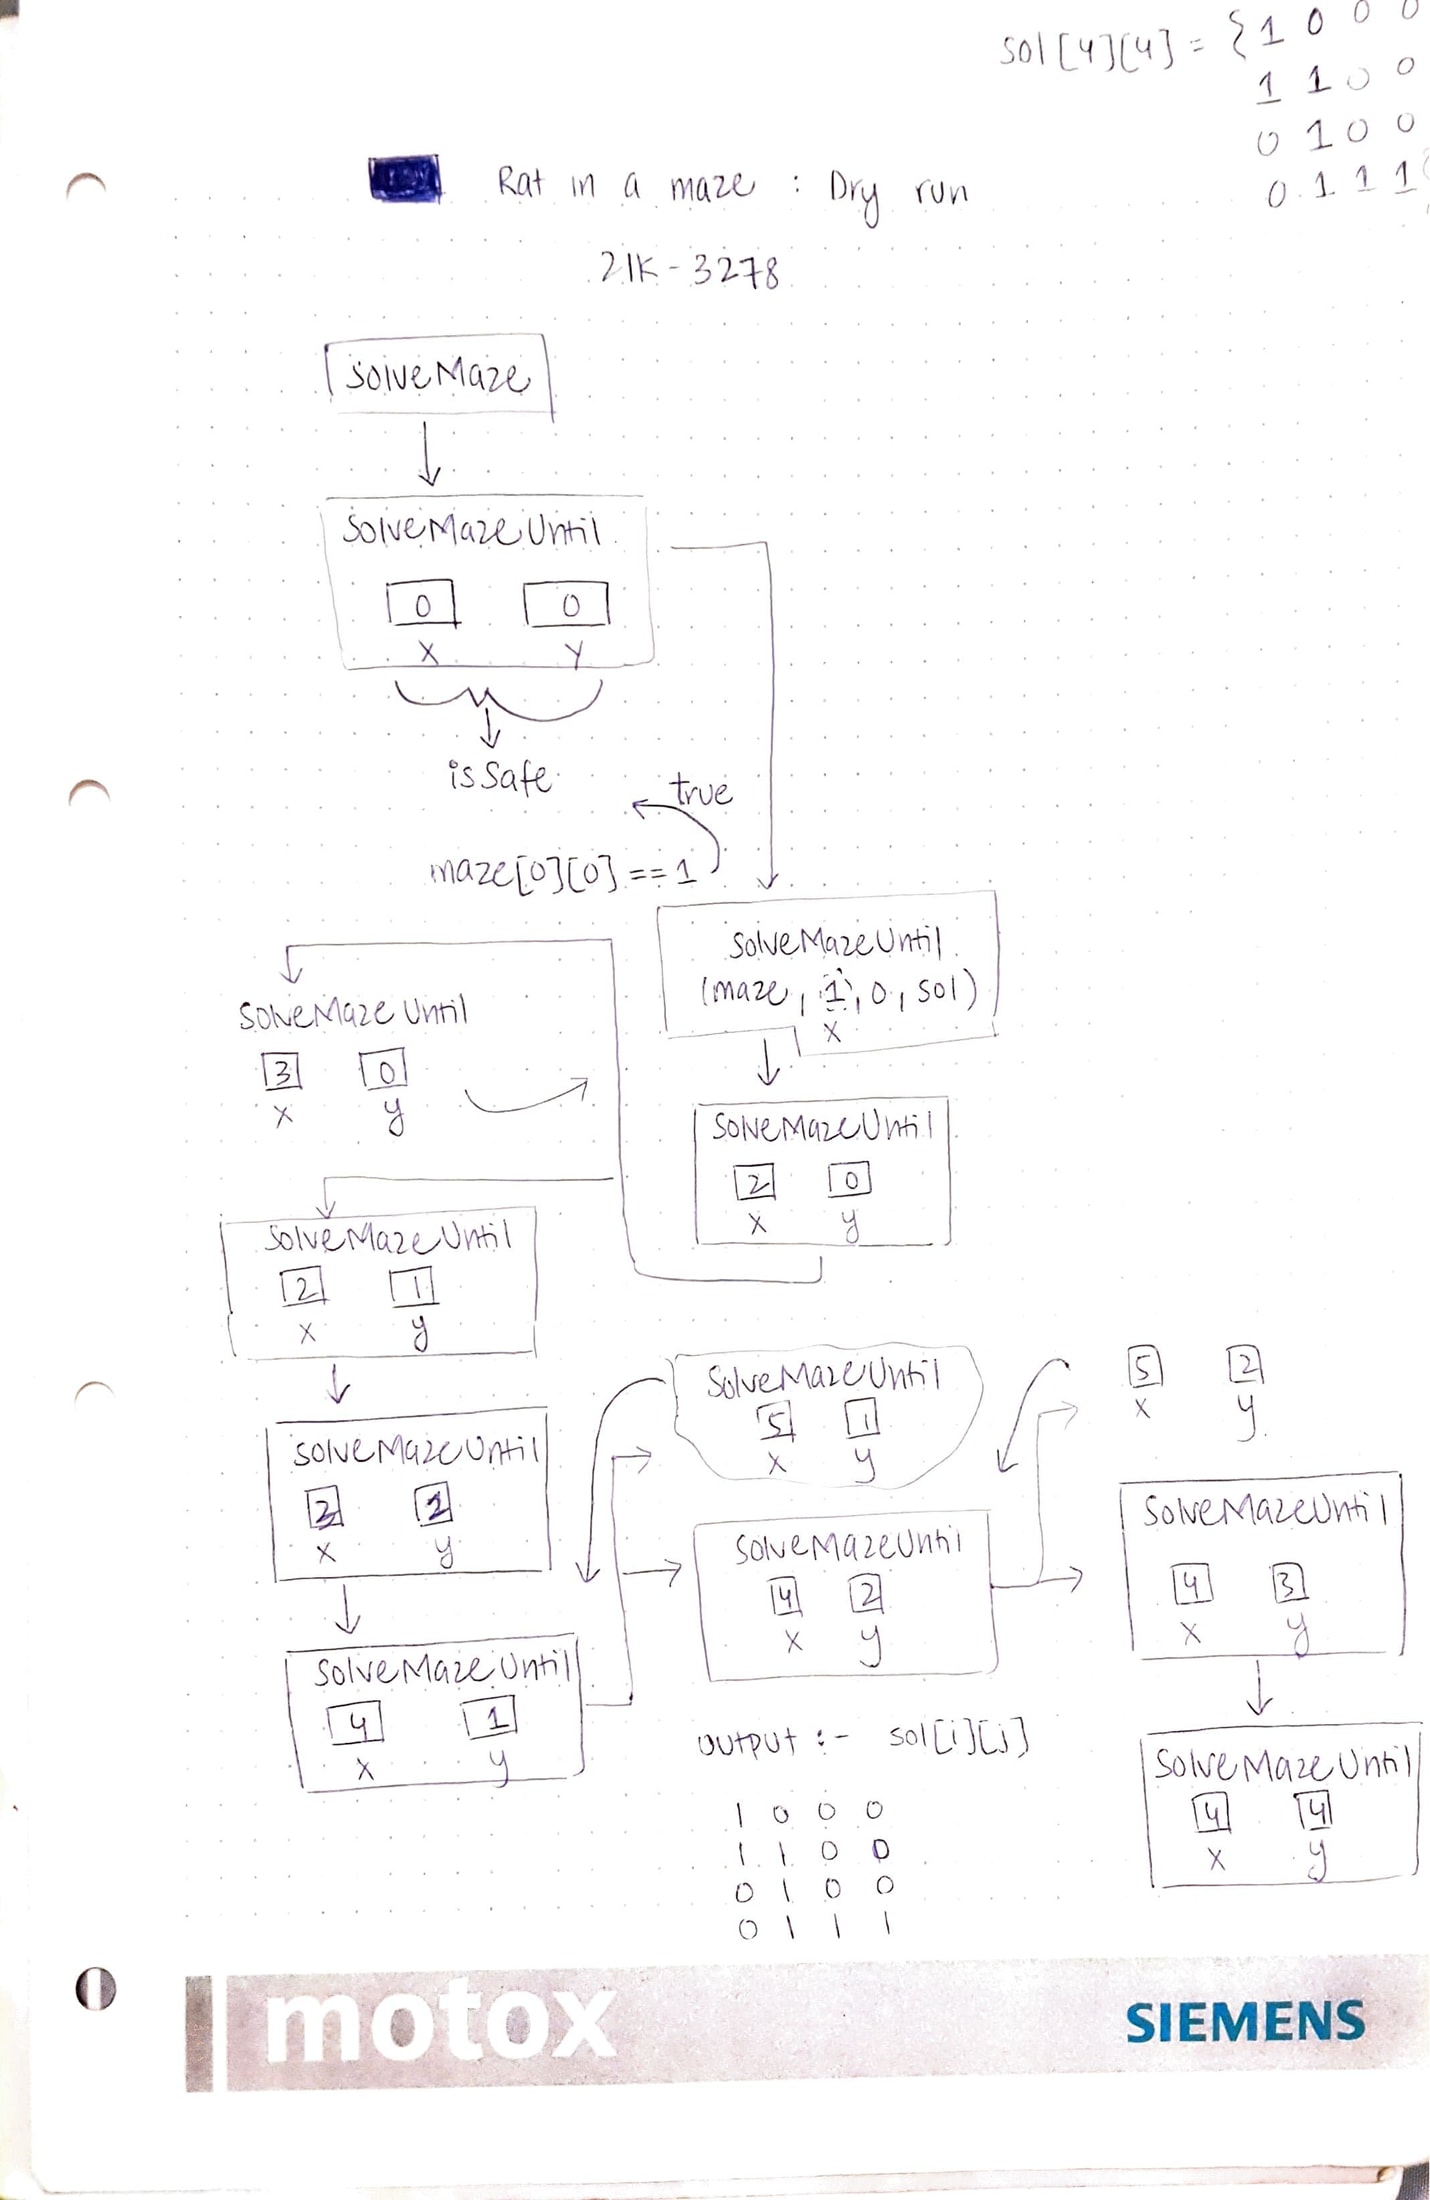 sol[4][4] = {1 0 0 0
1 1 0 0
0 1 0 0
0 1 1 1
Rat in a maze : Dry run
21K-3278
SolveMaze
SolveMazeUntil
0 0
x y
isSafe
true
maze[0][0] == 1
SolveMazeUntil
(maze, 1, 0, sol)
x
SolveMazeUntil
3 0
x y
SolveMazeUntil
2 0
x y
SolveMazeUntil
2 1
x y
SolveMazeUntil
5 1
x y
5 2
x y
SolveMazeUntil
x y
SolveMazeUntil
4 2
x y
SolveMazeUntil
4 3
x y
SolveMazeUntil
4 1
x y
SolveMazeUntil
4 4
x y
output :- sol[i][j]
1 0 0 0
1 1 0 0
0 1 0 0
0 1 1 1
motox
SIEMENS